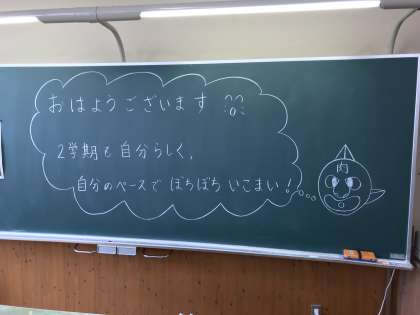 おはようございます
2学期も自分らしく、
自分のペースでぼちぼちいこまい!
内